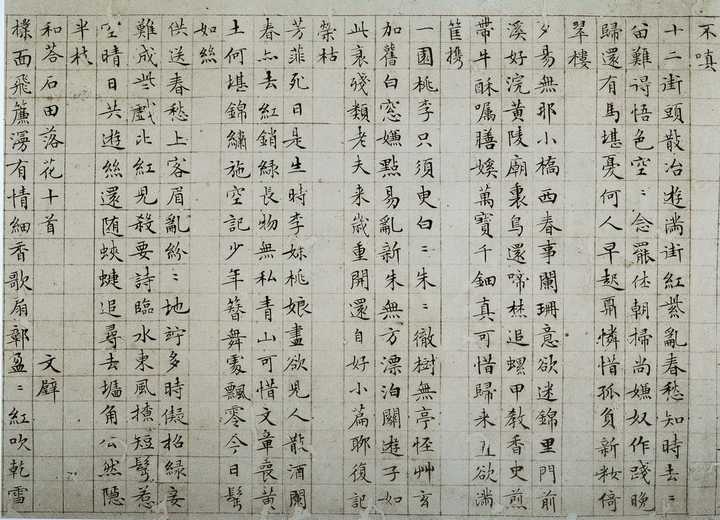 不嗔
十二街頭散冶遊滿街紅紫亂春愁知時去〻
留難得悟色空〻念罷休朝掃尚嫌奴作踐晚
歸還有馬堪憂何人早起肩憐惜孤負新妝倚
翠樓
夕昜無那小橋西春事闌珊意欲迷錦里門前
溪好浣黃陵廟裏鳥還啼焚追螺甲教香史煎
帶牛酥囑膳媛萬寶千鈿真可惜歸来直欲滿
筐携
一園桃李只須臾白〻朱〻徹樹無亭怪艸玄
加舊白窓嫌點易亂新朱無方漂泊關遊子如
此衰殘類老夫来歲重開還自好小篇聊復記
榮枯
芳菲死日是生時李妹桃娘盡欲兒人散酒闌
春亦去紅銷綠長物無私青山可惜文章喪黃
土何堪錦繡施空記少年簪舞處飄零今日鬂
如絲
供送春愁上客眉亂紛〻地竚多時儗招綠妾
難成些戲比紅兒殺要詩臨水東風撩短鬂惹
空晴日共遊絲還随蛺蜨追尋去墻角公然隱
半枝
和荅石田落花十首 文璧
撲面飛簾漫有情細香歌扇鄣盈〻紅吹乾雪